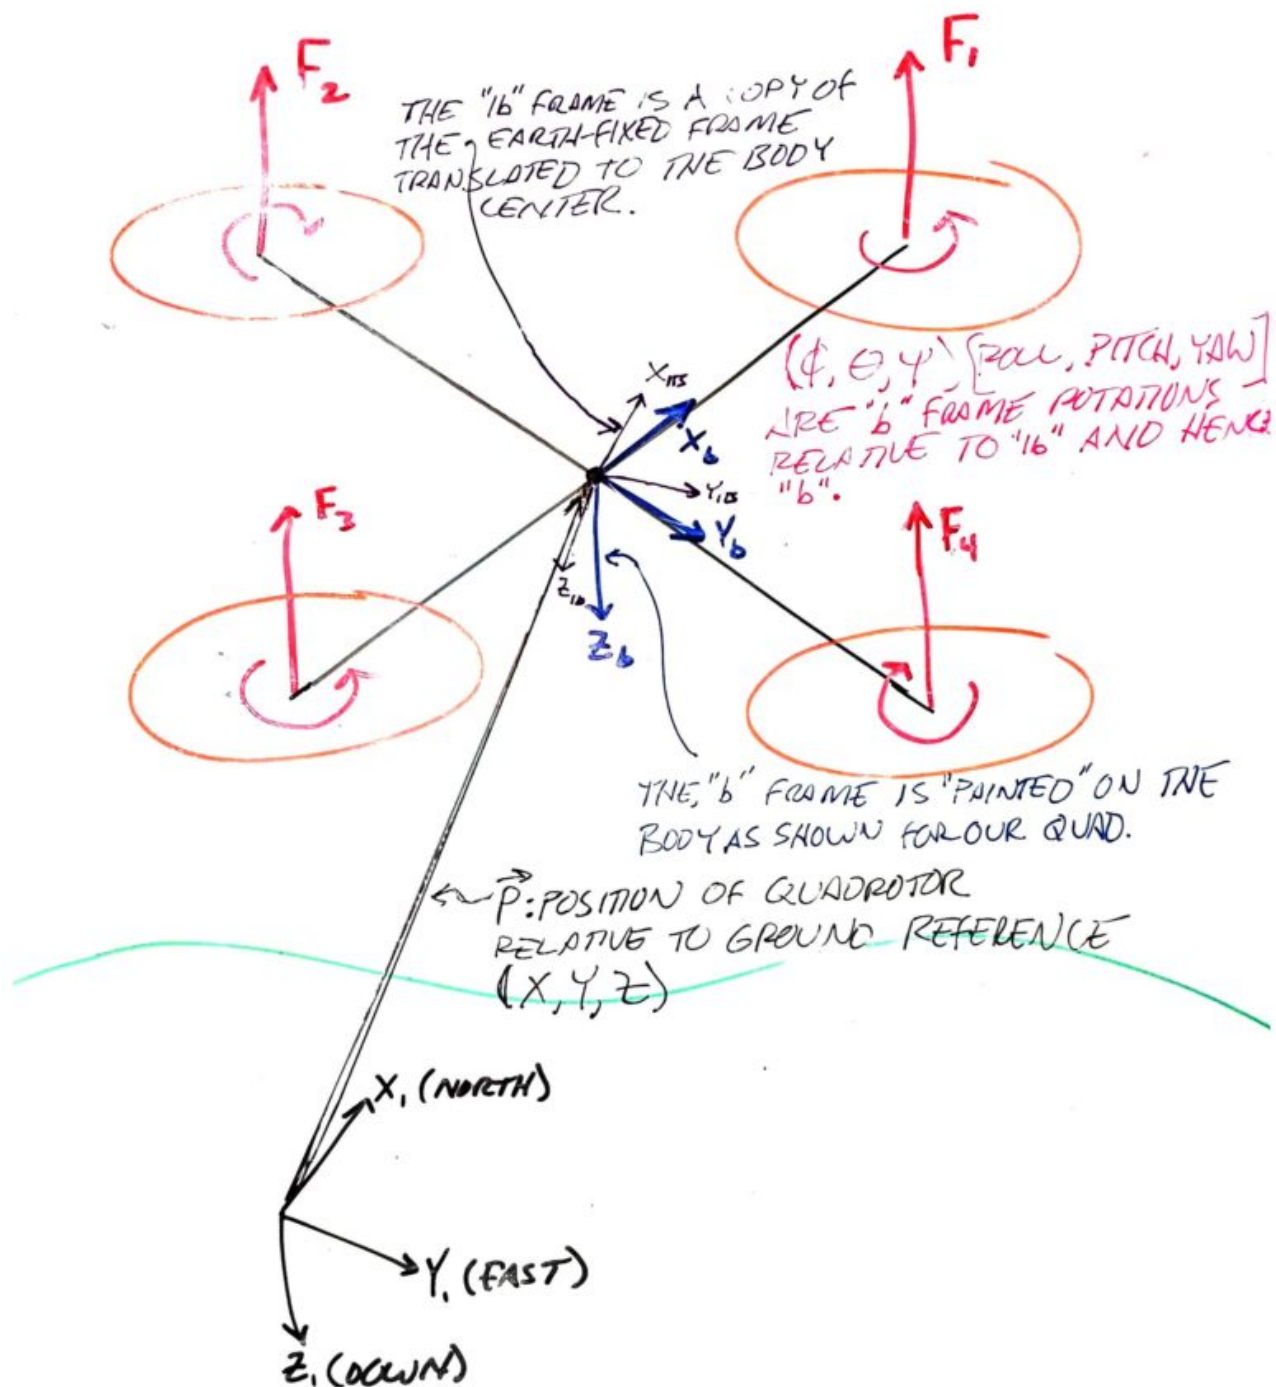 F2
F1
THE "1b" FRAME IS A COPY OF
THE EARTH-FIXED FRAME
TRANSLATED TO THE BODY
CENTER.
(ϕ, θ, ψ) [ROLL, PITCH, YAW]
ARE "b" FRAME ROTATIONS
RELATIVE TO "1b" AND HENCE
"b".
X1B
Xb
Y1B
Yb
Z1b
Zb
F3
F4
THE "b" FRAME IS "PAINTED" ON THE
BODY AS SHOWN FOR OUR QUAD.
P: POSITION OF QUADROTOR
RELATIVE TO GROUND REFERENCE
(X, Y, Z)
X1 (NORTH)
Y1 (EAST)
Z1 (DOWN)